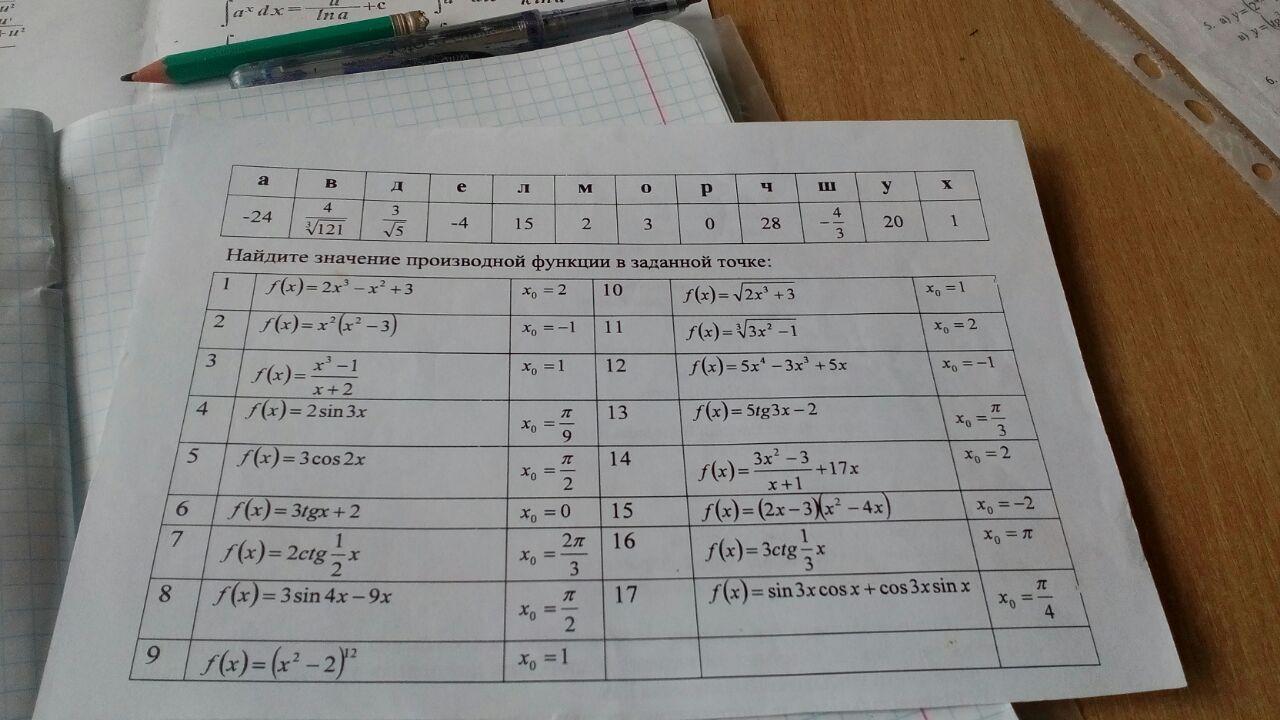 ∫aˣ dx = /ln a + c
5. а) y=
в) y=
6.
а в д е л м о р ч ш у х
-24 4/∛121 3/√5 -4 15 2 3 0 28 -4/3 20 1
Найдите значение производной функции в заданной точке:
1 f(x)=2x³−x²+3 x₀=2 10 f(x)=√(2x³+3) x₀=1
2 f(x)=x²(x²−3) x₀=−1 11 f(x)=∛(3x²−1) x₀=2
3 f(x)=(x³−1)/(x+2) x₀=1 12 f(x)=5x⁴−3x³+5x x₀=−1
4 f(x)=2sin3x x₀=π/9 13 f(x)=5tg3x−2 x₀=π/3
5 f(x)=3cos2x x₀=π/2 14 f(x)=(3x²−3)/(x+1)+17x x₀=2
6 f(x)=3tgx+2 x₀=0 15 f(x)=(2x−3)(x²−4x) x₀=−2
7 f(x)=2ctg 1/2 x x₀=2π/3 16 f(x)=3ctg 1/3 x x₀=π
8 f(x)=3sin4x−9x x₀=π/2 17 f(x)=sin3xcosx+cos3xsinx x₀=π/4
9 f(x)=(x²−2)¹² x₀=1